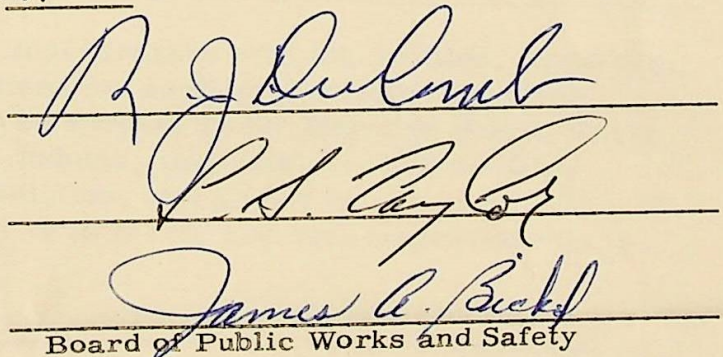 R. J. DuComb
P. S. Taylor
James A. Bickel
Board of Public Works and Safety